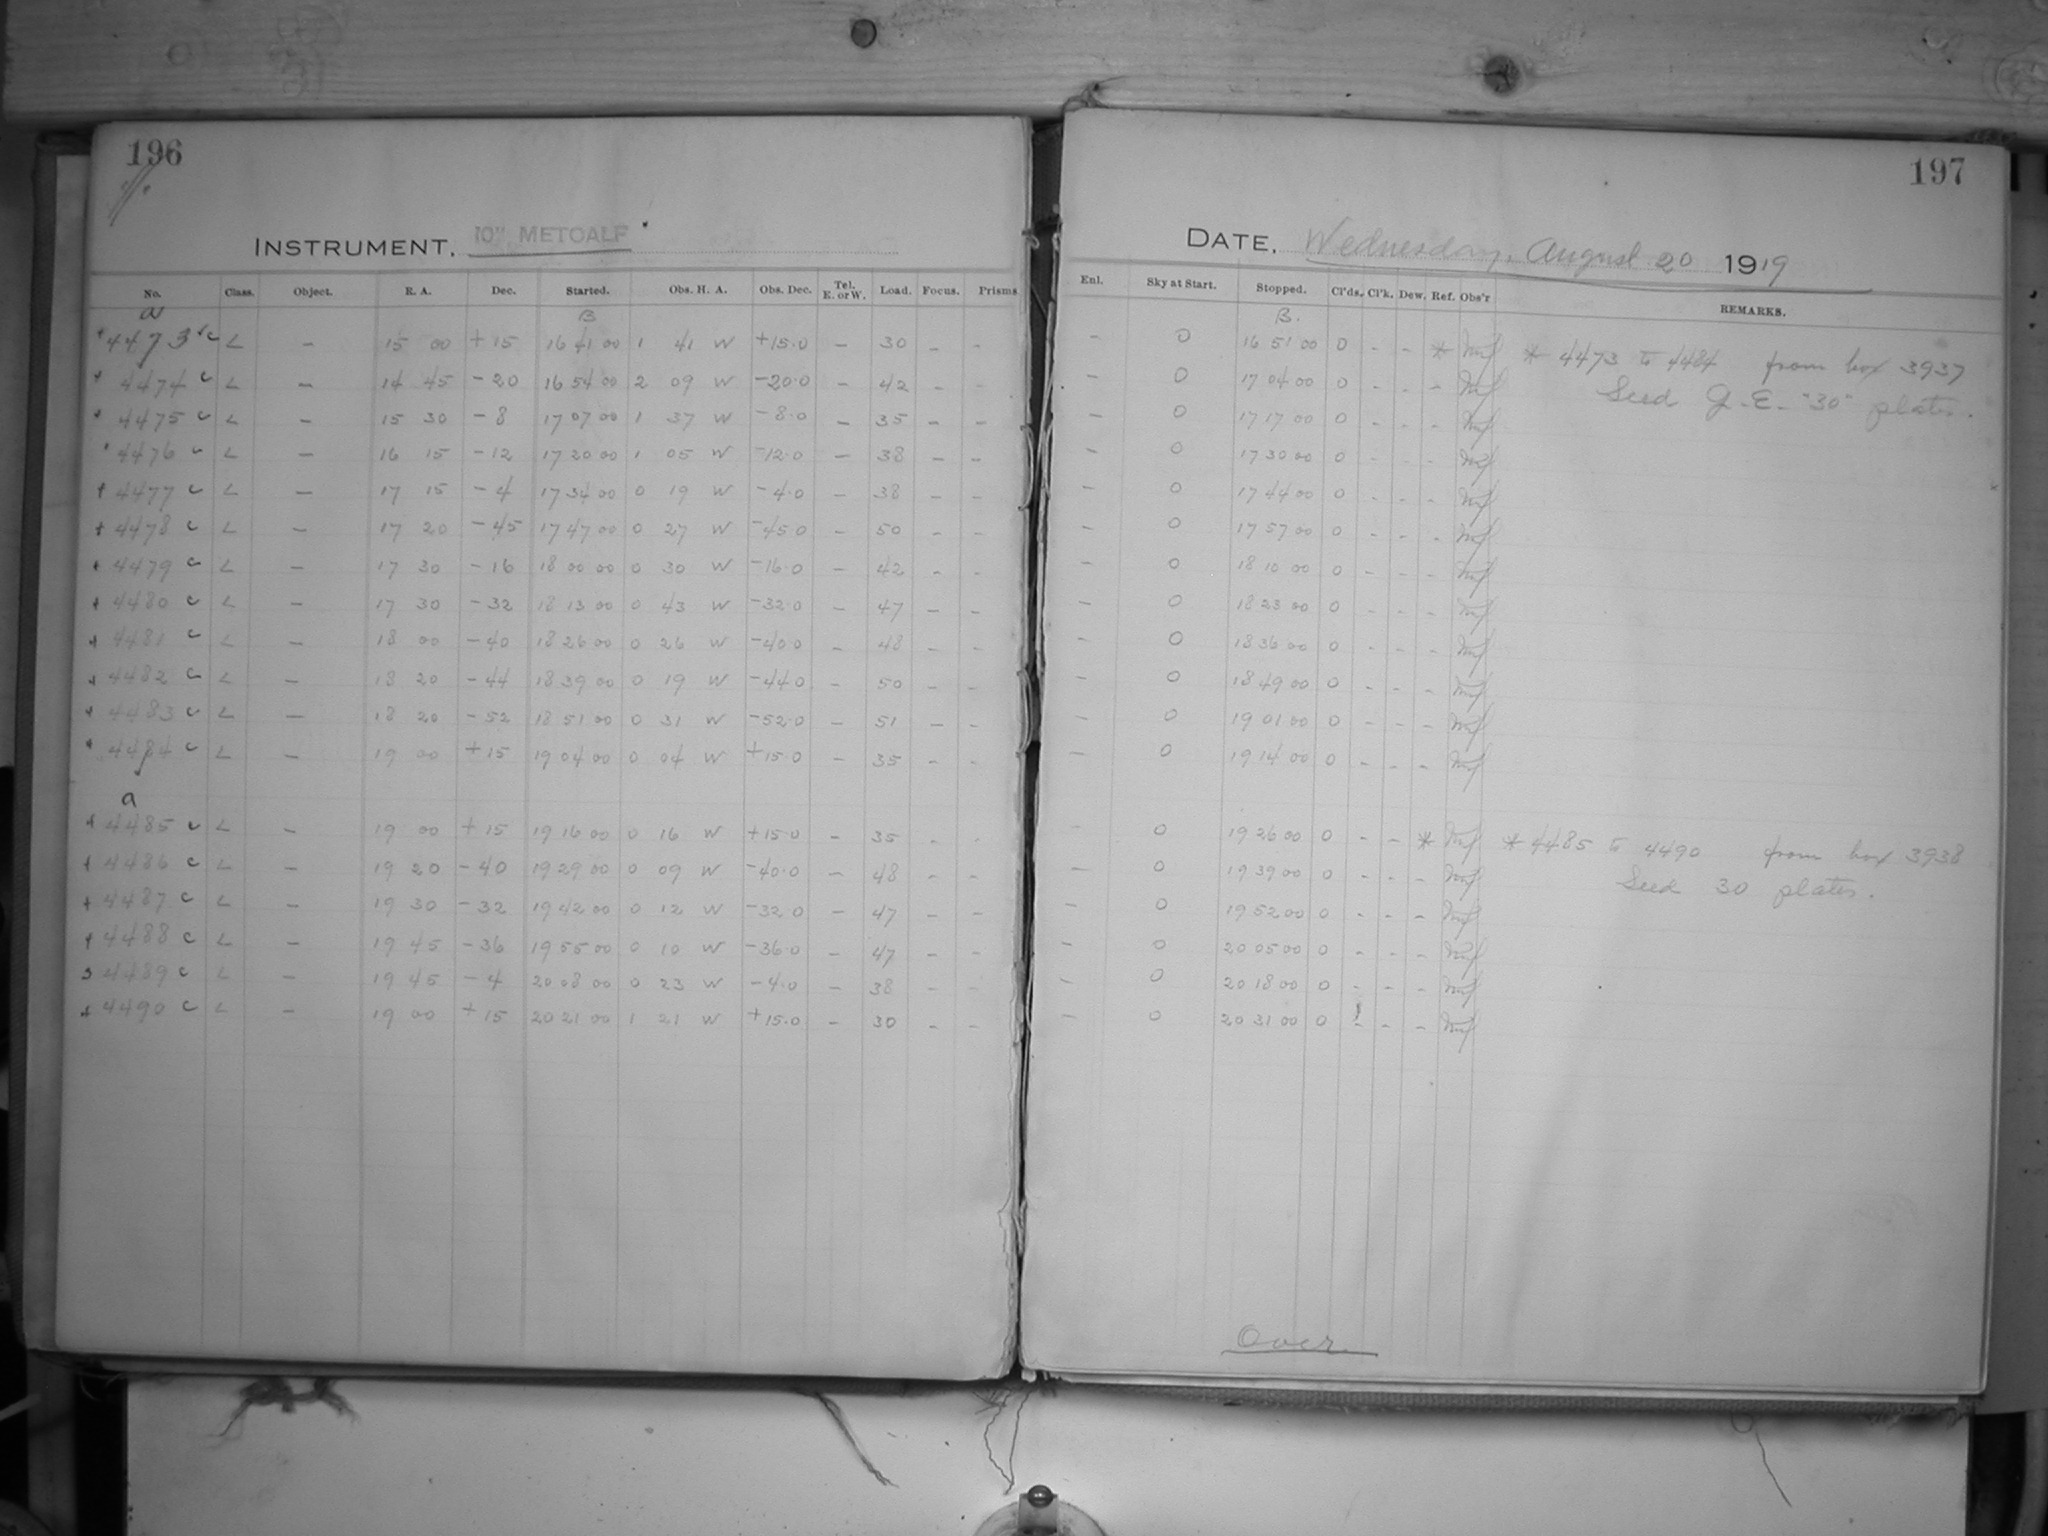 196
INSTRUMENT. 10" METCALF
No. Class. Object. R. A. Dec. Started. Obs. H. A. Obs. Dec. Tel. E. or W. Load. Focus. Prisms
a B
+ 4473 c L - 15 00 +15 16 41 00 1 41 W +15.0 - 30 - -
+ 4474 c L - 14 45 -20 16 54 00 2 09 W -20.0 - 42 - -
+ 4475 c L - 15 30 -8 17 07 00 1 37 W -8.0 - 35 - -
+ 4476 c L - 16 15 -12 17 20 00 1 05 W -12.0 - 38 - -
+ 4477 c L - 17 15 -4 17 34 00 0 19 W -4.0 - 38 - -
+ 4478 c L - 17 20 -45 17 47 00 0 27 W -45.0 - 50 - -
+ 4479 c L - 17 30 -16 18 00 00 0 30 W -16.0 - 42 - -
+ 4480 c L - 17 30 -32 18 13 00 0 43 W -32.0 - 47 - -
+ 4481 c L - 18 00 -40 18 26 00 0 26 W -40.0 - 48 - -
+ 4482 c L - 18 20 -44 18 39 00 0 19 W -44.0 - 50 - -
+ 4483 c L - 18 20 -52 18 51 00 0 31 W -52.0 - 51 - -
+ 4484 c L - 19 00 +15 19 04 00 0 04 W +15.0 - 35 - -
a
+ 4485 c L - 19 00 +15 19 16 00 0 16 W +15.0 - 35 - -
+ 4486 c L - 19 20 -40 19 29 00 0 09 W -40.0 - 48 - -
+ 4487 c L - 19 30 -32 19 42 00 0 12 W -32.0 - 47 - -
+ 4488 c L - 19 45 -36 19 55 00 0 10 W -36.0 - 47 - -
+ 4489 c L - 19 45 -4 20 08 00 0 23 W -4.0 - 38 - -
+ 4490 c L - 19 00 +15 20 21 00 1 21 W +15.0 - 30 - -
197
DATE. Wednesday, August 20 1919
Enl. Sky at Start. Stopped. Cl'ds. Cl'k. Dew. Ref. Obs'r REMARKS.
B.
- 0 16 51 00 0 - - * * 4473 to 4484 from box 3937
- 0 17 04 00 0 - - - Seed G. E. "30" plates.
- 0 17 17 00 0 - - -
- 0 17 30 00 0 - - -
- 0 17 44 00 0 - - -
- 0 17 57 00 0 - - -
- 0 18 10 00 0 - - -
- 0 18 23 00 0 - - -
- 0 18 36 00 0 - - -
- 0 18 49 00 0 - - -
- 0 19 01 00 0 - - -
- 0 19 14 00 0 - - -
- 0 19 26 00 0 - - * * 4485 to 4490 from box 3938
- 0 19 39 00 0 - - - Seed 30 plates.
- 0 19 52 00 0 - - -
- 0 20 05 00 0 - - -
- 0 20 18 00 0 - - -
- 0 20 31 00 0 - - -
Over